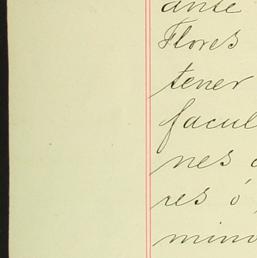 ante
Flores
tener
facul
nes
res ó
mino